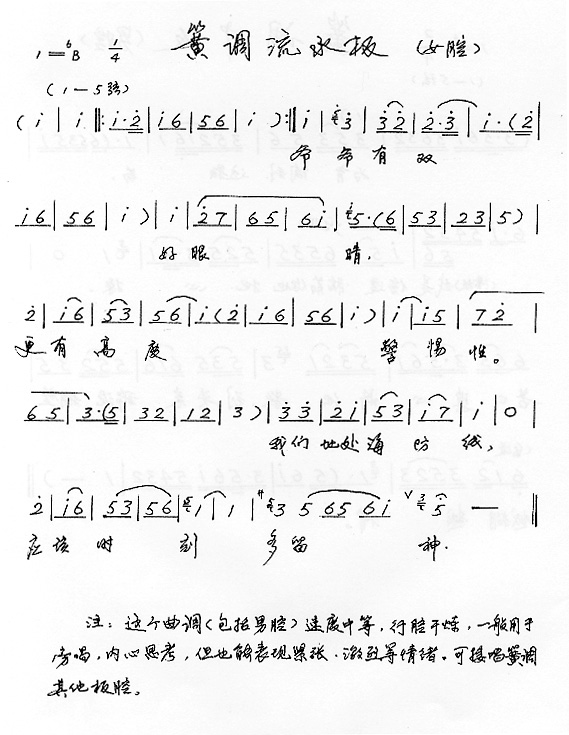 1=♭B 1/4 簧调流水板 (女腔)
(1—5弦)
(i | i ‖: i·2̇ | i6 | 56 | i ) :‖ i | 3̇ | 3̇2̇ | 2̇·3̇ | i·(2̇ |
爷爷有双
i6 | 56 | i ) | i | 2̇7 | 65 | 6i | 5·(6 | 53 | 23 | 5) |
好眼睛.
2̇ | i6 | 53 | 56 | i(2̇ | i6 | 56 | i) | i | i5 | 72̇ |
更有高度警惕性。
65 | 3·(5 | 32 | 12 | 3) | 3̇3̇ | 2̇i | 53 | i7 | i | 0 |
我们地处海防线,
2̇ | i6 | 53 | 56 | 1 | 1 | 3 5 65 6i 5 — ‖
应该时刻多留神.
注:这个曲调(包括男腔)速度中等,行腔干炼,一般用于
旁唱,内心思考,但也能表现紧张·激烈等情绪。可接唱簧调
其他板腔。